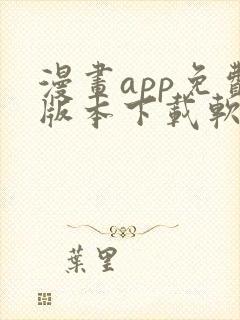 漫畫app免費
版本下載軟
葉里